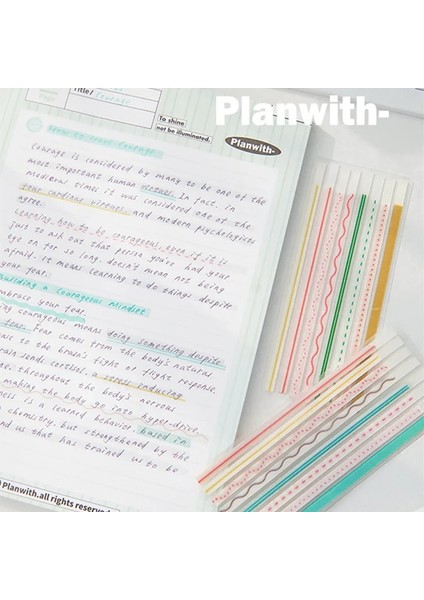 Title/
To shine
not be illuminated.
Planwith-
Planwith-
How to create Courage
Courage is considered by many to be one of the
most important human virtues. In fact, in
medieval times it was considered one of the
four cardinal virtues, and modern psychologists
agree.
Learning how to be courageous, even if it is
just to ask out that person you've had your
eye on for so long, doesn't mean not being
afraid. It means learning to do things despite
your fear.
Building a Courageous Mindset
mbrace your fear.
ing courageous means doing something despite
fear. Fear comes from the body's natural
se to the brain's fight or flight response.
brain sends cortisol, a stress inducing
e, throughout the body's nervous
making the body go into hyper-drive.
ness is a learned behavior, based in
chemistry, but strengthened by the
nd us that has trained us to be
Planwith.all rights reserved